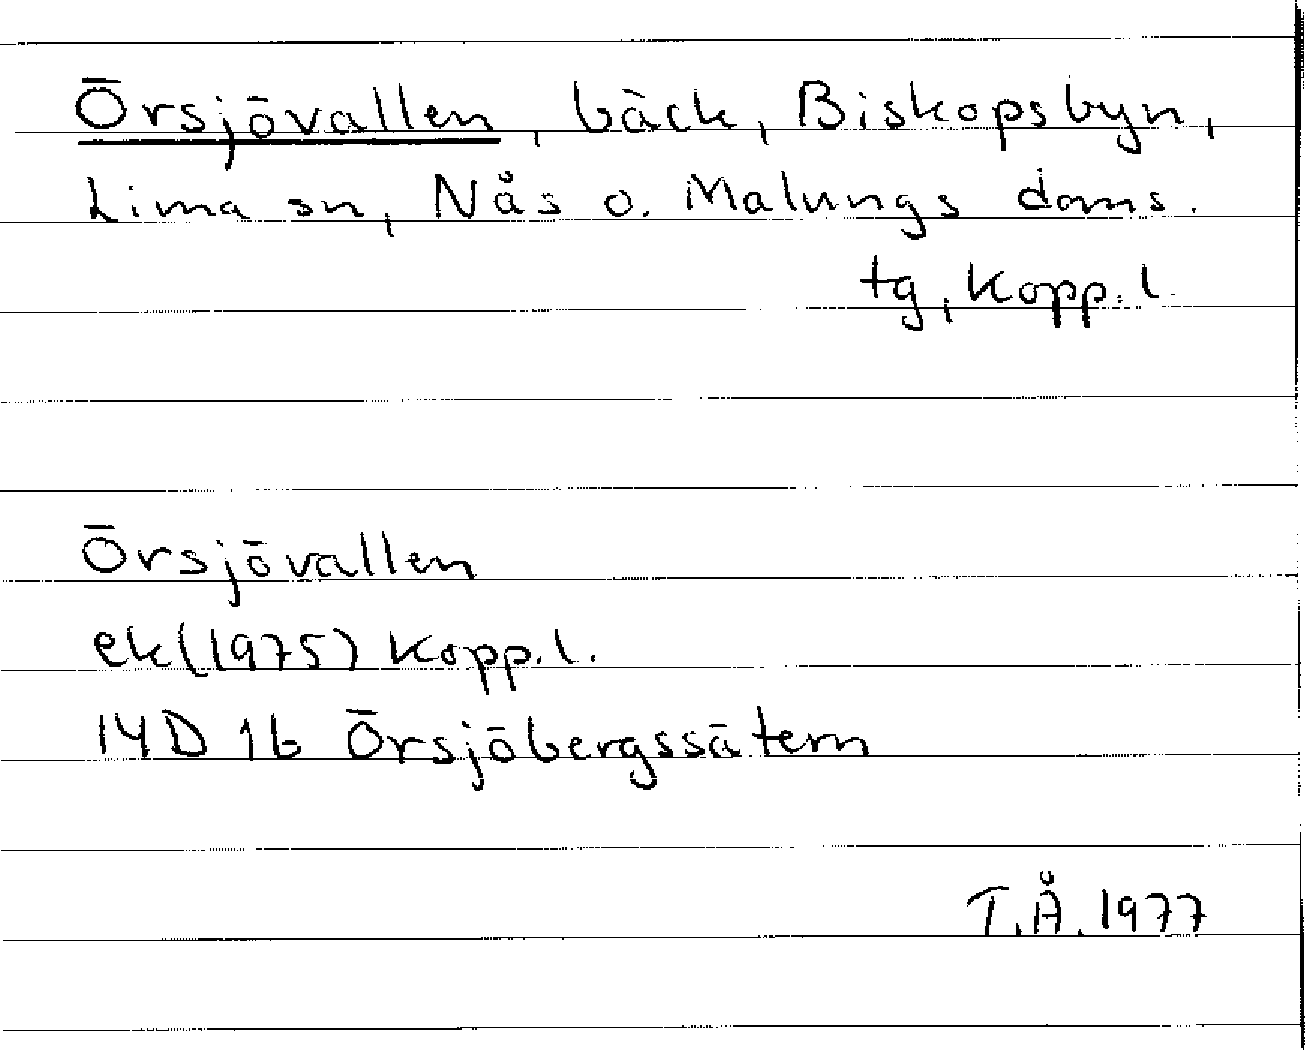 Örsjövallen, bäck, Biskopsbyn,
Lima sn, Nås o. Malungs doms.
tg, Kopp. l.
Örsjövallen
ek(1975) Kopp. l.
14D 1b Örsjöbergssätern
T.Å. 1977